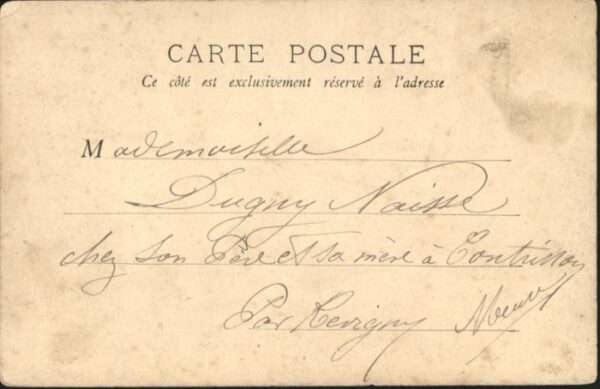 CARTE POSTALE
Ce côté est exclusivement réservé à l'adresse
Mademoiselle
Dugny Naisse
chez son Père et sa mère à Contrisson
Par Revigny Meuse